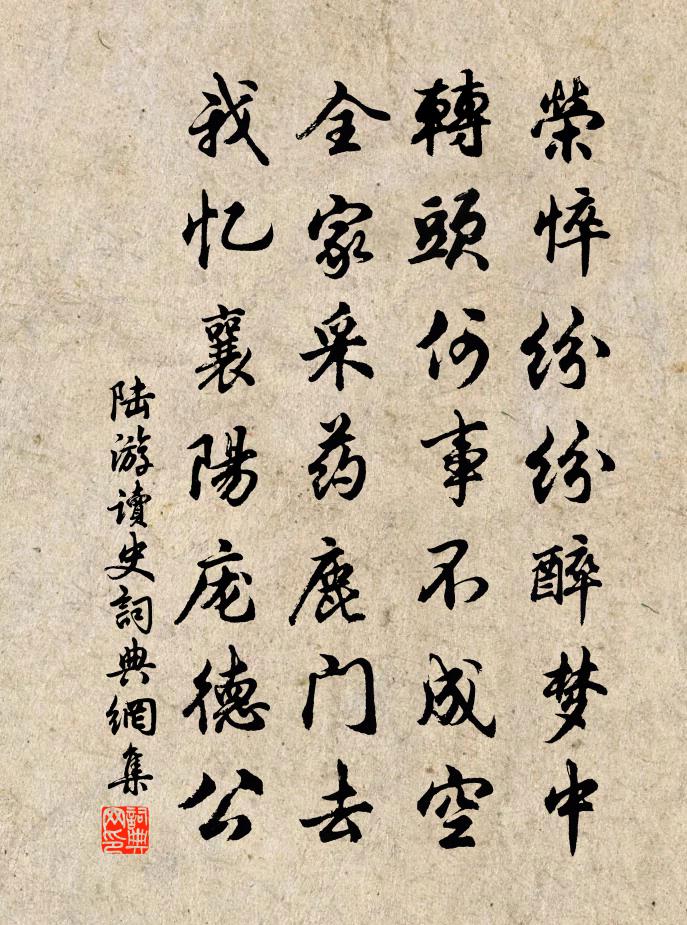 榮悴纷纷醉梦中
轉頭何事不成空
全家采药鹿门去
我忆襄陽庞德公
陆游讀史詞典網集
詞典网印